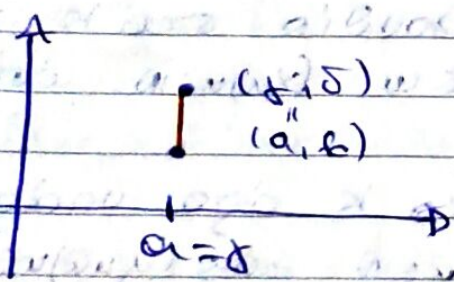 (γ, δ)
"
(a, b)
a = γ